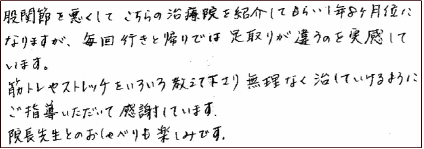 股関節を悪くして こちらの治療院を紹介してもらい1年8ヶ月位に
なりますが、毎回 行きと帰りでは 足取りが違うのを実感して
います。
筋トレやストレッチをいろいろ教えて下さり 無理なく治していけるように
ご指導いただいて感謝しています。
院長先生とのおしゃべりも楽しみです。